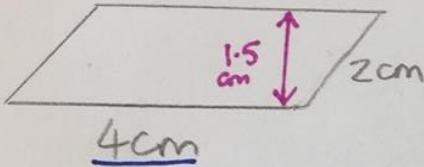 1.5
cm
2cm
4cm